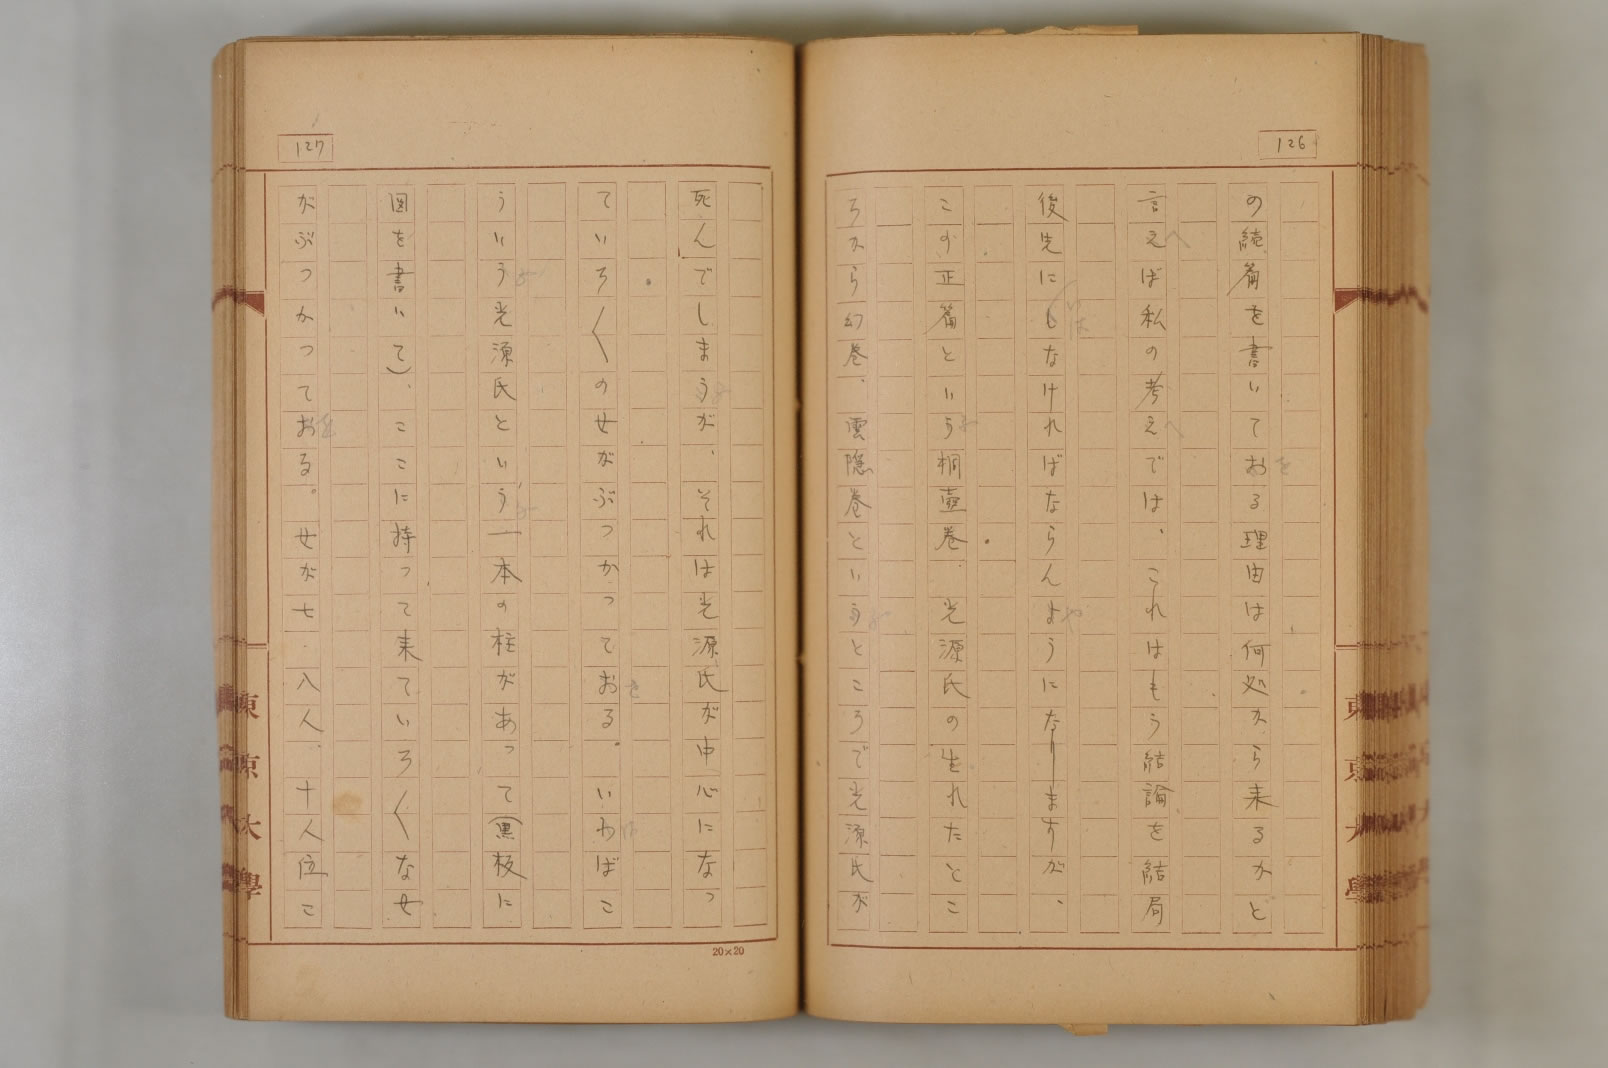 126
の続篇を書いておる理由は何処から来るかと
言えば私の考えでは、これはもう結論を結局
後先にしなければならんようになりますが、
この正篇という桐壺巻、光源氏の生れたとこ
ろから幻巻、雲隠巻というところで光源氏が
127
死んでしまうが、それは光源氏が中心になっ
ていろ〱の女がぶつかっておる。いわばこ
ういう光源氏という一本の柱があって(黒板に
図を書いて)、ここに持って来ていろ〱な女
がぶつかっておる。女が七、八人、十人位こ
20×20
東京大學
東京大學